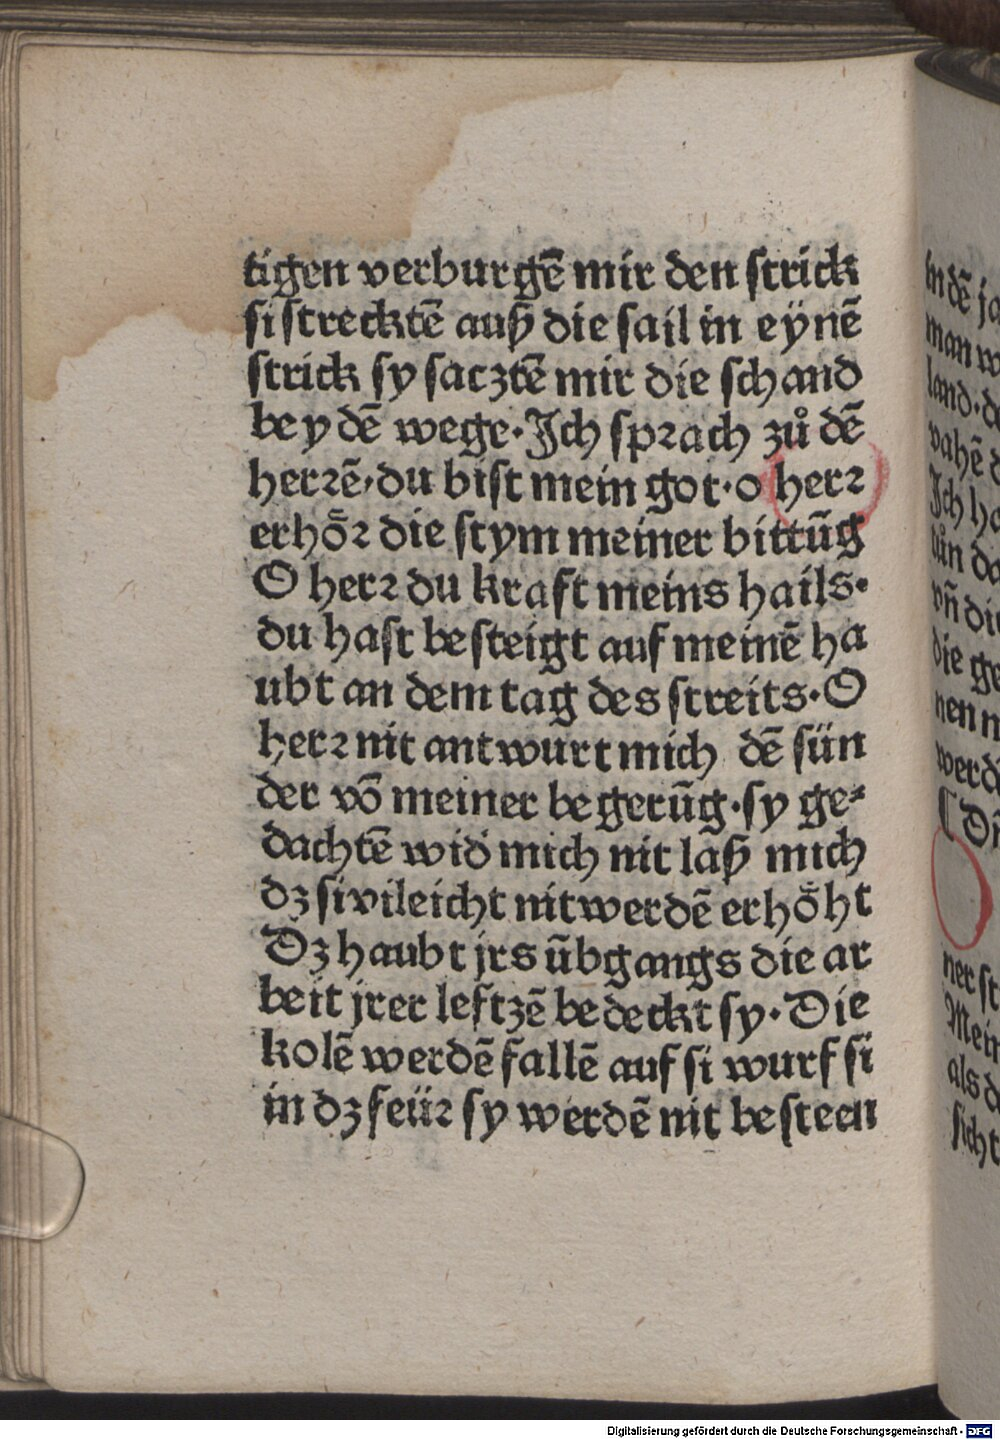 tigen verburgē mir den strick
si strecktē auß die sail in eÿnē
strick sy sacztē mir die schand
bey dē wege · Jch sprach zů dē
herrē · du bist mein got · o herr
erhȫr die stym meiner bittūg
O herr du kraft meins hails ·
du hast besteigt auf meinē ha
ubt an dem tag des streits · O
herr nit antwurt mich dē sün
der vō meiner begerūg · sy ge⸗
dachtē wid̾ mich nit laß mich
dz si vileicht nit werdē erhöht
Dz haubt jrs ūbgangs die ar
beit jrer leftzē bedeckt sy · Die
kolē werdē fallē auf si wurf si
in dz feür sy werdē nit besteen
in dē
man
land · d
vahē d
Jch ha
vn̄ die
die ge
nen n
werd
¶ D
ner st
Mein
als d
sicht
Digitalisierung gefördert durch die Deutsche Forschungsgemeinschaft - DFG